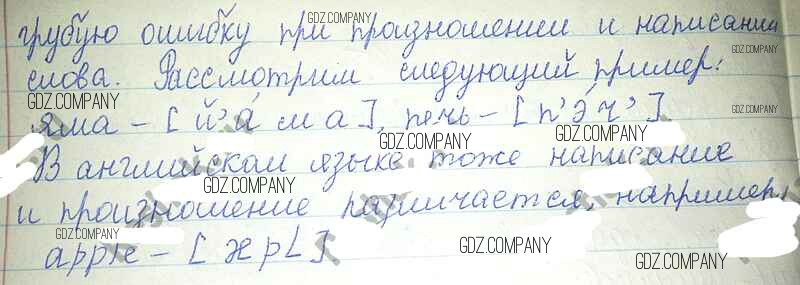 грубую ошибку при произношении и написании
слова. Рассмотрим следующий пример:
яма – [й'á м а], печь – [п'э́ ч']
В английском языке тоже написание
и произношение различается, например,
apple – [æpL]
GDZ.COMPANY
GDZ.COMPANY
GDZ.COMPANY
GDZ.COMPANY
GDZ.COMPANY
GDZ.COMPANY
GDZ.COMPANY
GDZ.COMPANY
GDZ.COMPANY
GDZ.COMPANY
GDZ.COMPANY
GDZ.COMPANY